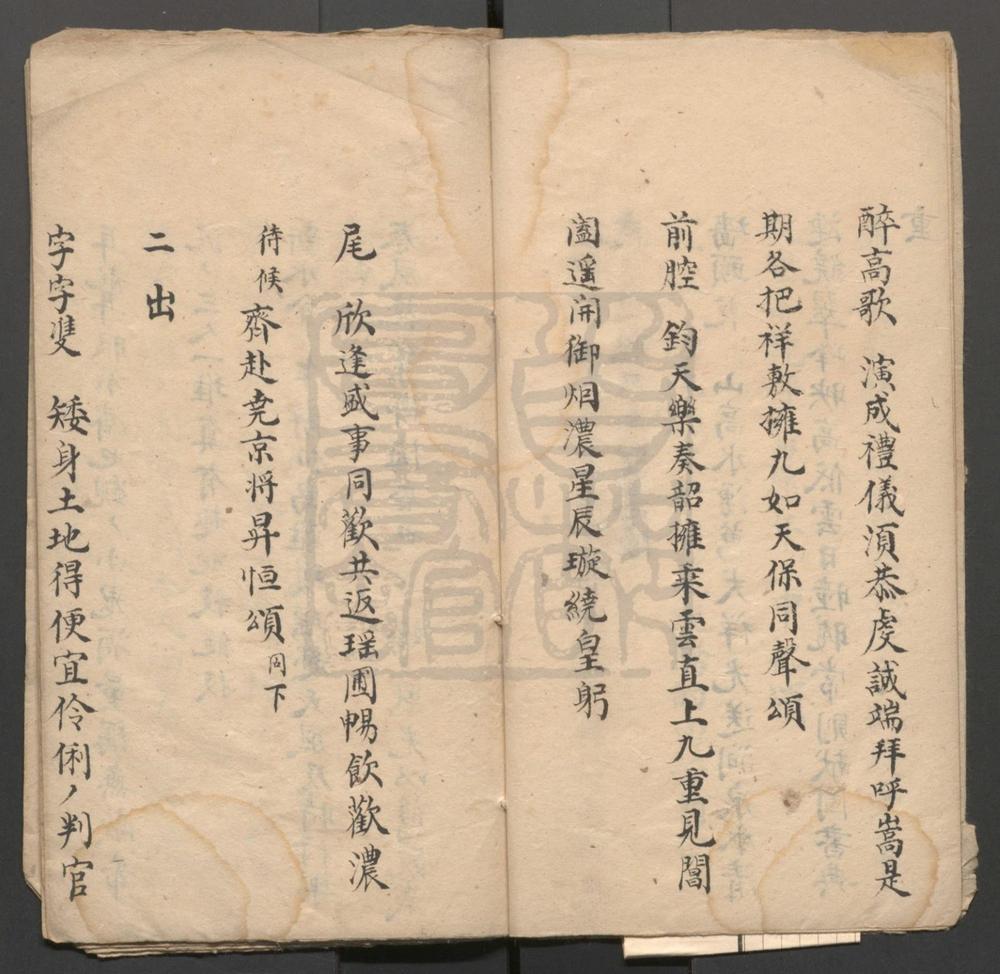 醉高歌　演成禮儀須恭虔誠端拜呼嵩是
期各把祥敷擁九如天保同聲頌
前腔　鈞天樂奏韶擁来雲直上九重見閶
闔遥開御烟濃星辰璇繞皇躬
尾　欣逢盛事同歡共返瑶圃暢飲歡濃
待候齊赴尭京将昇恒頌同下
二出
字字雙　矮身土地得便宜伶俐ノ判官